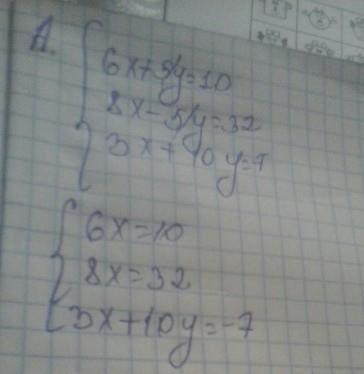 А.
6x+5y=10
8x-5y=32
3x+10y=7
6x=10
8x=32
3x+10y=-7